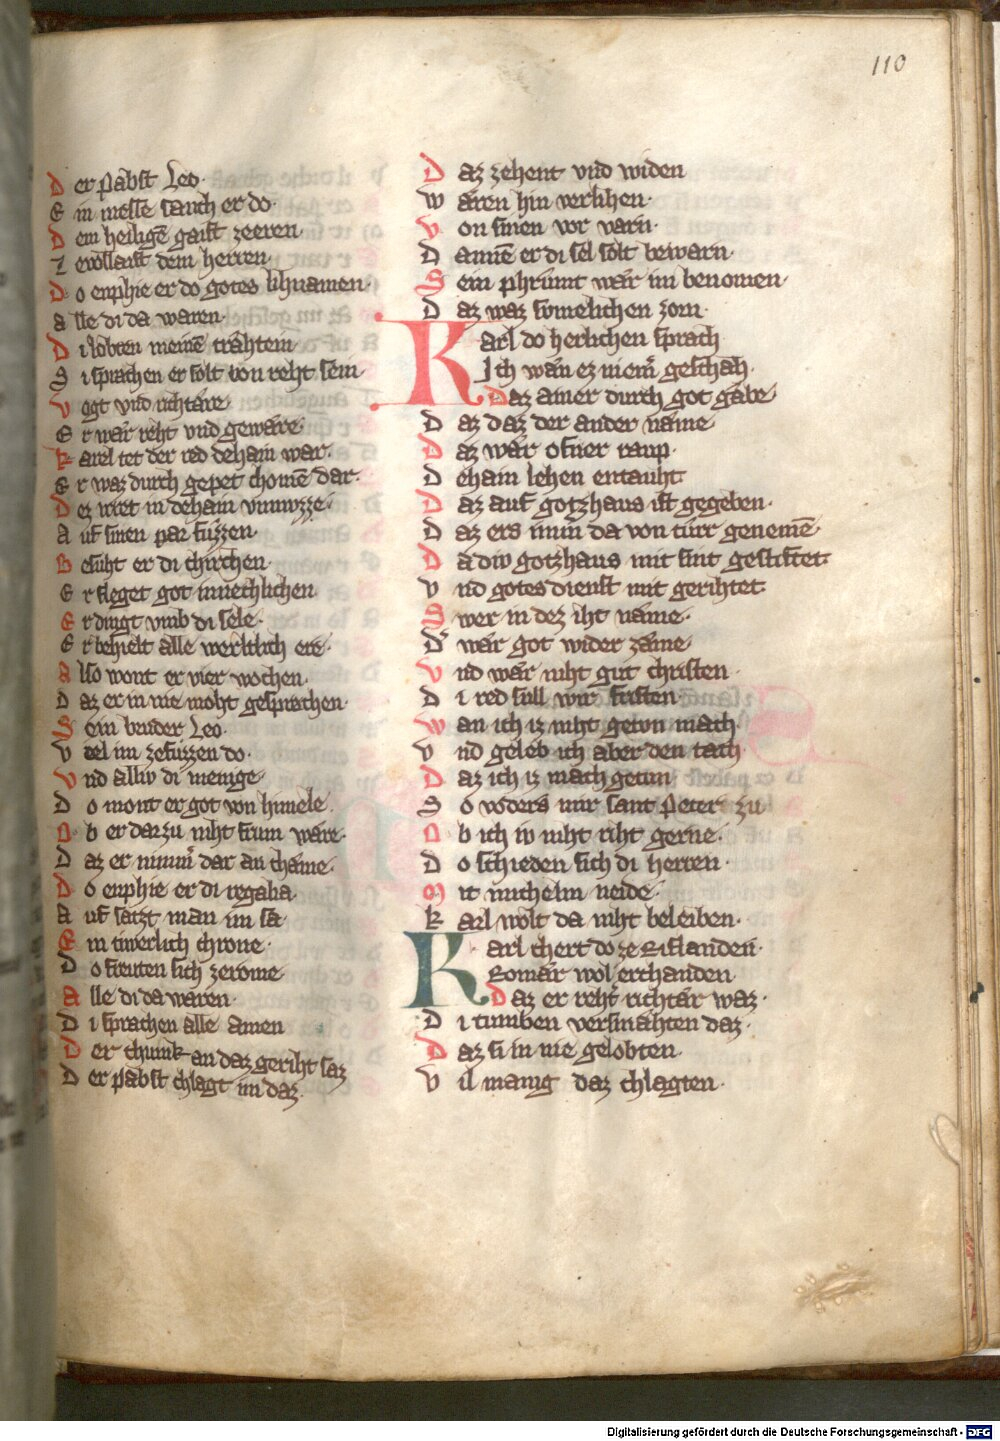 110
Der Pabst Leo·
Ein messe sanch er do·
Dem heiligē gaist zeeren·
Zevollaist dem herren·
Do enphie er do gotes lihnamen·
alle di da waren·
Di lobten meinē trahtein·
Si sprachen er solt von reht sein
vogt vnd richtare·
Er wår reht vnd geware·
karel tet der red dehain war·
Er waz durch gepet chomē dar·
Dez wiet in dehain vnmvzze·
Auf sinen par fuzzen·
Besuht er di chirchen·
Er fleget got innechlichen·
Er dingt vmb di sele·
Er behielt alle werltlich ere·
also wont er vier wochen·
Daz er in nie moht gesprechen·
Sein bruder Leo·
Viel im zefuzzen do·
vnd alliv di menige·
Do mont er got von himele·
Ob er darzu niht frum ware·
Daz er nimm̄ dar an chåme·
Do enphie er di regalia
Auf satzt man im sa
Ein tiwerlich chrone·
Do freuten sich zerome
alle di da waren·
Di sprachen alle amen
Der chunk an daz geriht saz
Der pabst chlagt im daz·
Daz zehent vnd widen
Wåren hin verlihen·
Von sinen vor varn·
Damit er di sel solt bewarn·
Sein phrůnt wår im benomen·
Daz waz sůmelichen zorn·
Karl do herlichen sprach
Ich wån ez niem̄ geschåh·
Daz amer durch got gåbe·
Daz daz der ander nåme·
Daz wår ofner raup·
Dehain lehen entauht·
Daz auf gotzhaus ist gegeben·
Daz ers nimm̄ da von turr genemē·
Da div gotzhaus mit sint gestiftet·
vnd gotes dienst mit gerihtet·
Swer in dez iht nåme·
Dˢ wår got wider zåme·
vnd wår niht gut christen·
Di red sull wir fristen·
wan ich iz niht getvn mach·
vnd geleb ich aber den tach·
Daz ich iz mach getun
So voders mir sant Peter zu
Ob ich iv niht riht gerne·
Do schieden sich di herren·
Mit michelm neide·
karl wolt da niht beleiben·
Karl chert do ze Riflanden·
Romår wol erchanden·
Daz er reht̄ richtår waz·
Di tumben versmåhten daz·
Daz si in nie gelobten·
Vil manig daz chlagten·
Digitalisierung gefördert durch die Deutsche Forschungsgemeinschaft - DFG